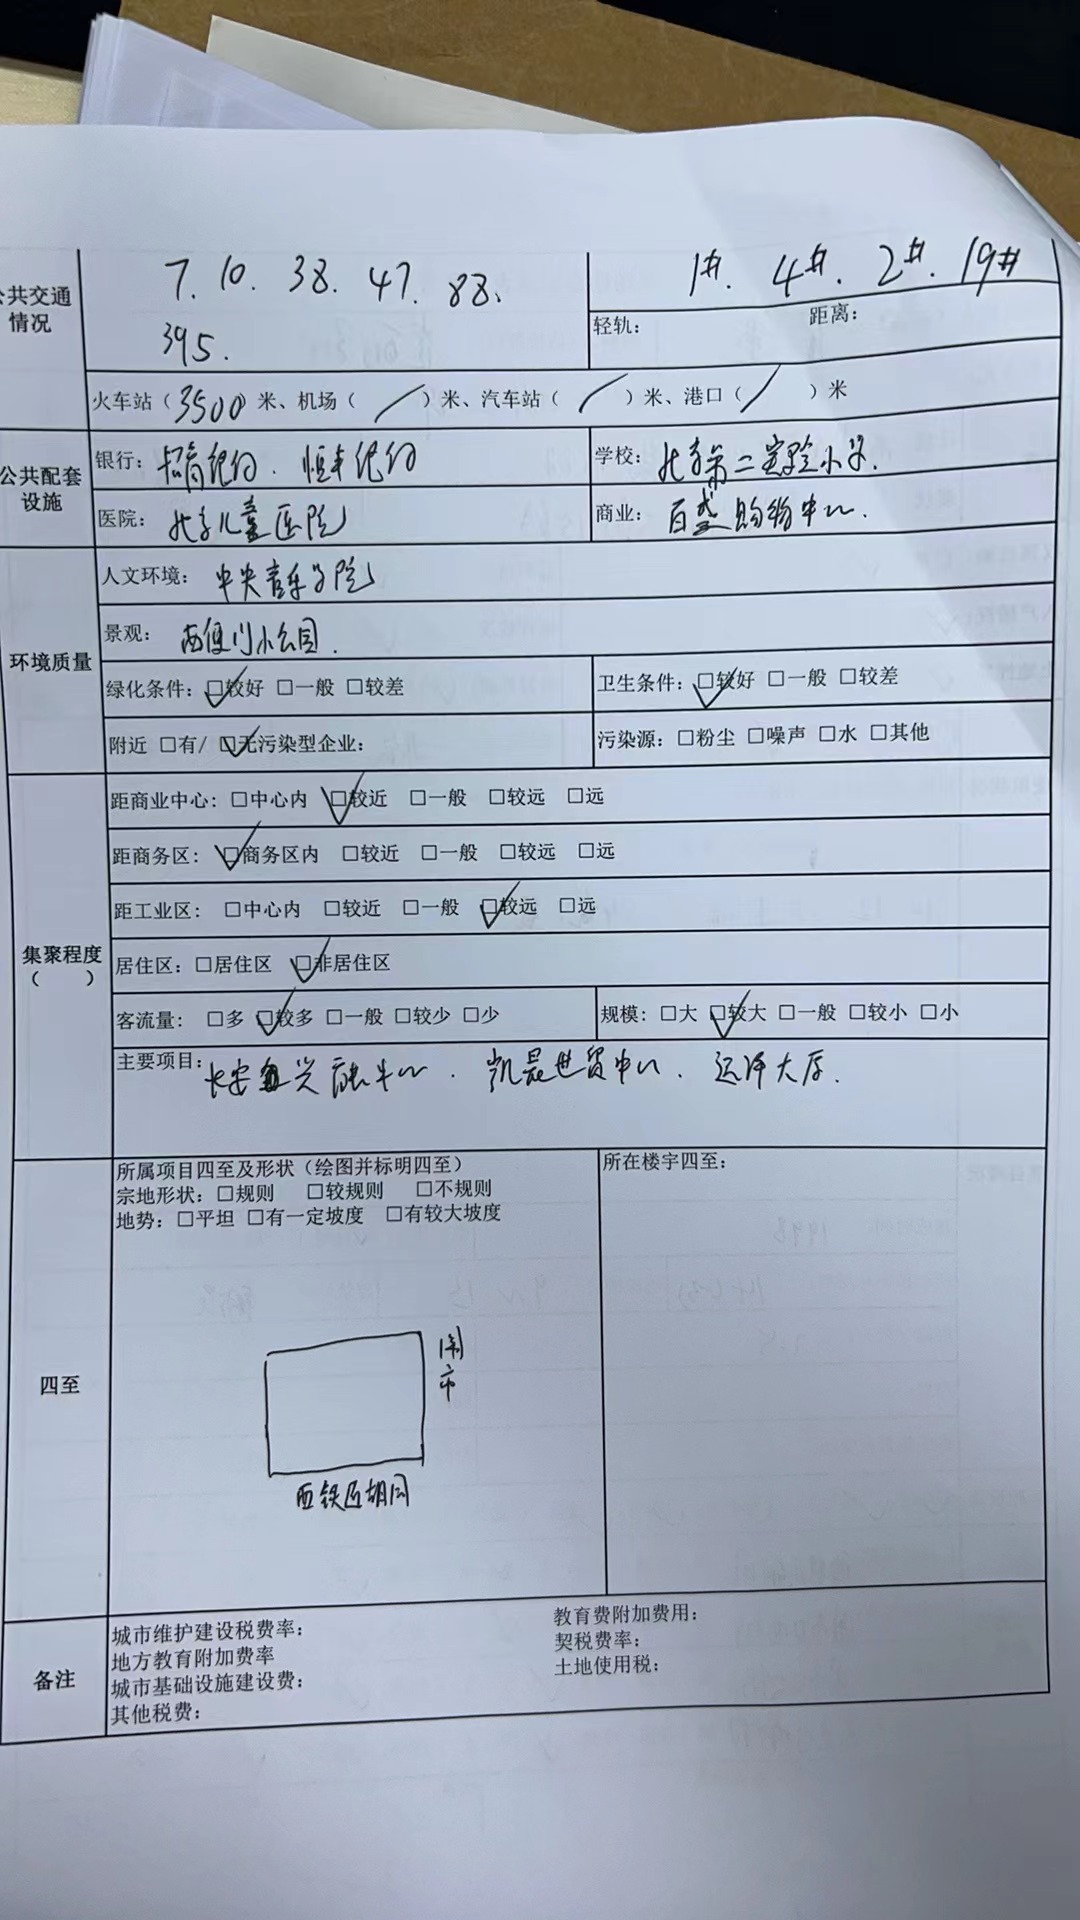 公共交通情况
7. 10. 38. 47. 88.
395.
1#. 4#. 2#. 19#
轻轨: 距离:
火车站(3500)米、机场( / )米、汽车站( / )米、港口( / )米
公共配套设施
银行: 招商银行. 恒丰银行
学校: 北京第二实验小学.
医院: 北京儿童医院
商业: 百盛购物中心.
环境质量
人文环境: 中央音乐学院
景观: 西便门小公园.
绿化条件: ☑较好 □一般 □较差
卫生条件: ☑较好 □一般 □较差
附近 □有/ ☑无污染型企业:
污染源: □粉尘 □噪声 □水 □其他
集聚程度
( )
距商业中心: □中心内 ☑较近 □一般 □较远 □远
距商务区: ☑商务区内 □较近 □一般 □较远 □远
距工业区: □中心内 □较近 □一般 ☑较远 □远
居住区: □居住区 ☑非居住区
客流量: □多 ☑较多 □一般 □较少 □少
规模: □大 ☑较大 □一般 □较小 □小
主要项目: 长安兴融中心. 凯晨世贸中心. 远洋大厦.
四至
所属项目四至及形状(绘图并标明四至)
宗地形状: □规则 □较规则 □不规则
地势: □平坦 □有一定坡度 □有较大坡度
所在楼宇四至:
闹市
西铁匠胡同
备注
城市维护建设税费率:
地方教育附加费率
城市基础设施建设费:
其他税费:
教育费附加费用:
契税费率:
土地使用税: